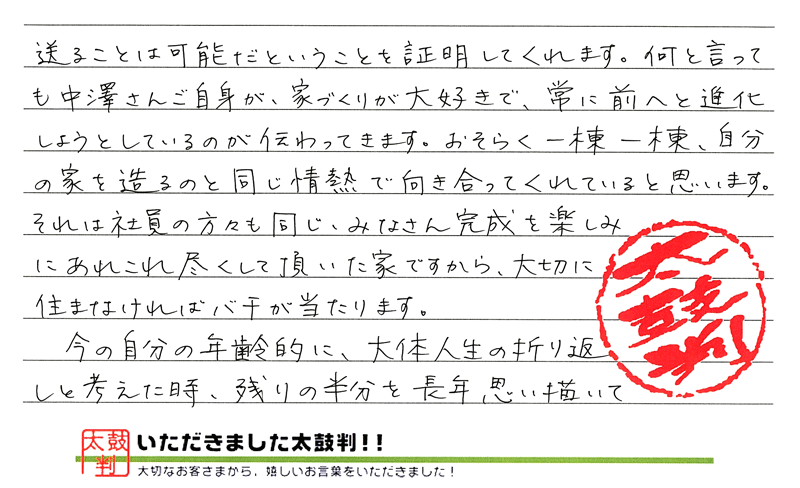 送ることは可能だということを証明してくれます。何と言って
も中澤さんご自身が、家づくりが大好きで、常に前へと進化
しようとしているのが伝わってきます。おそらく一棟一棟、自分
の家を造るのと同じ情熱で向き合ってくれていると思います。
それは社員の方々も同じ、みなさん完成を楽しみ
にあれこれ尽くして頂いた家ですから、大切に
住まなければバチが当たります。
今の自分の年齢的に、大体人生の折り返
しと考えた時、残りの半分を長年思い描いて
太鼓判
太鼓判
いただきました太鼓判!!
大切なお客さまから、嬉しいお言葉をいただきました!